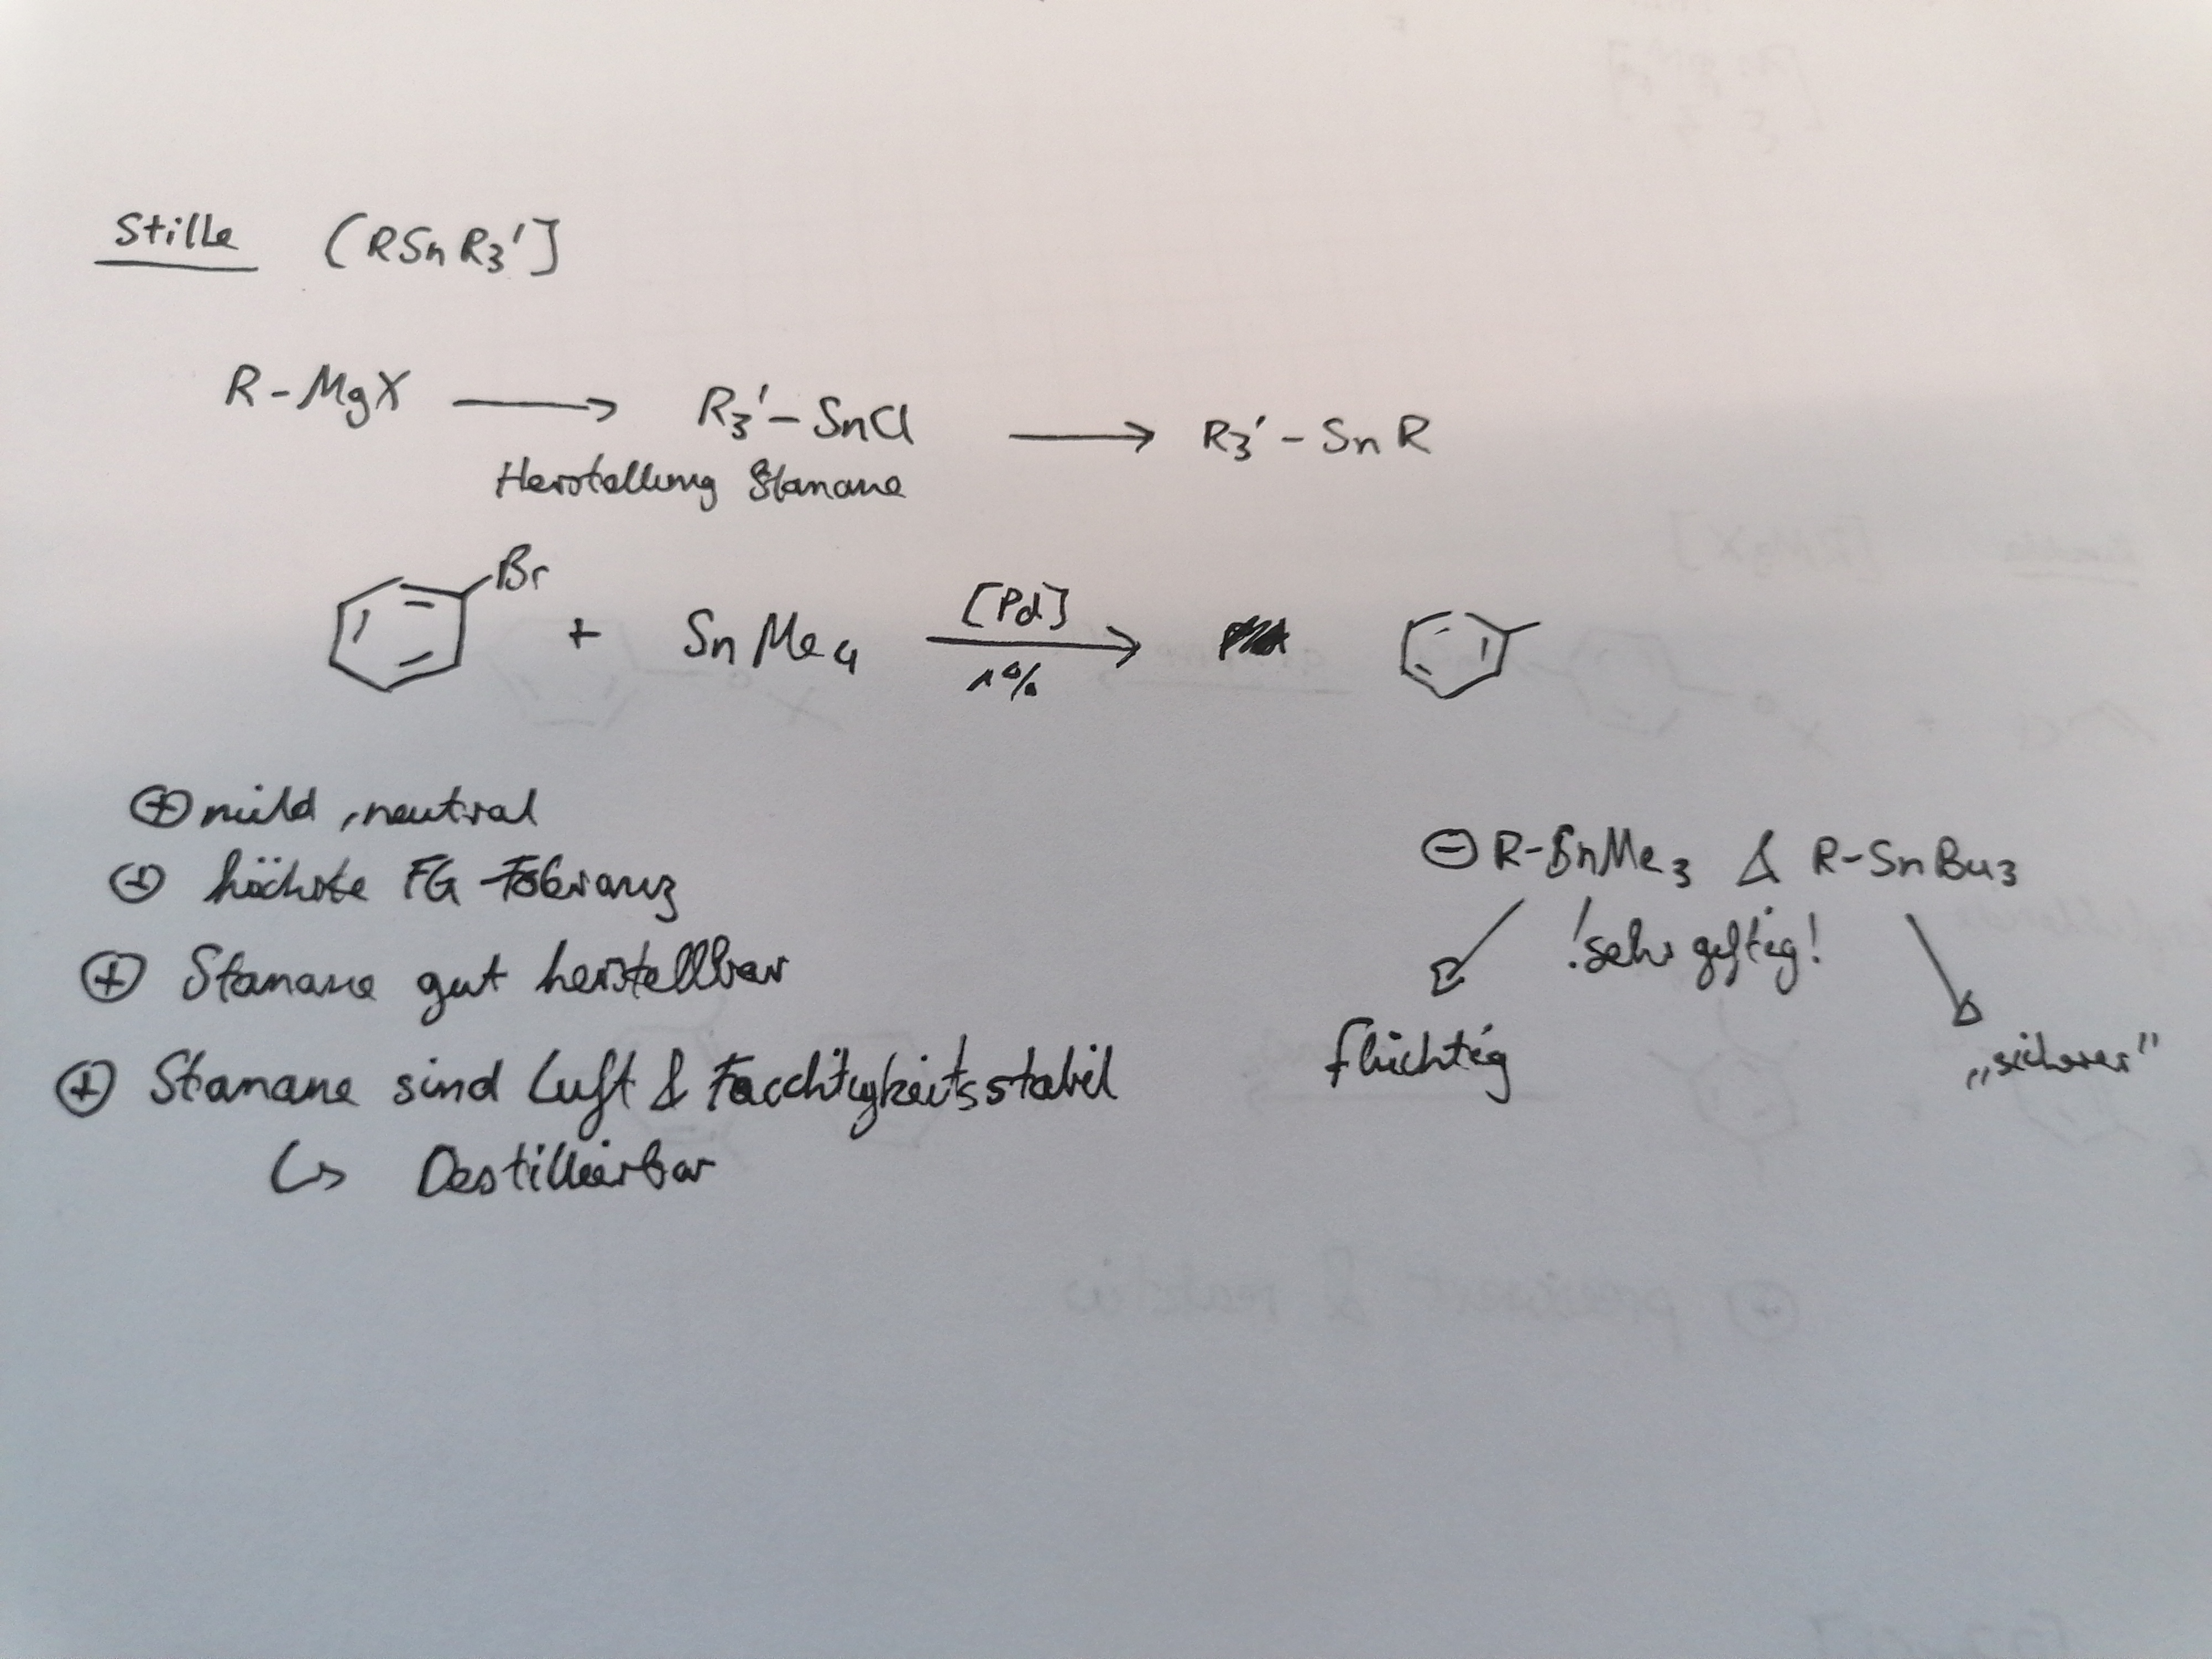 Stille [RSnR3']
R-MgX → R3'-SnCl → R3'-SnR
Herstellung Stanane
Br
+ SnMe4 [Pd] 1%
⊕ mild, neutral
⊕ höchste FG-Toleranz
⊕ Stanane gut herstellbar
⊕ Stanane sind Luft & Feuchtigkeitsstabil
↳ Destillierbar
⊖ R-SnMe3 & R-SnBu3
! sehr giftig!
flüchtig
„sicherer"